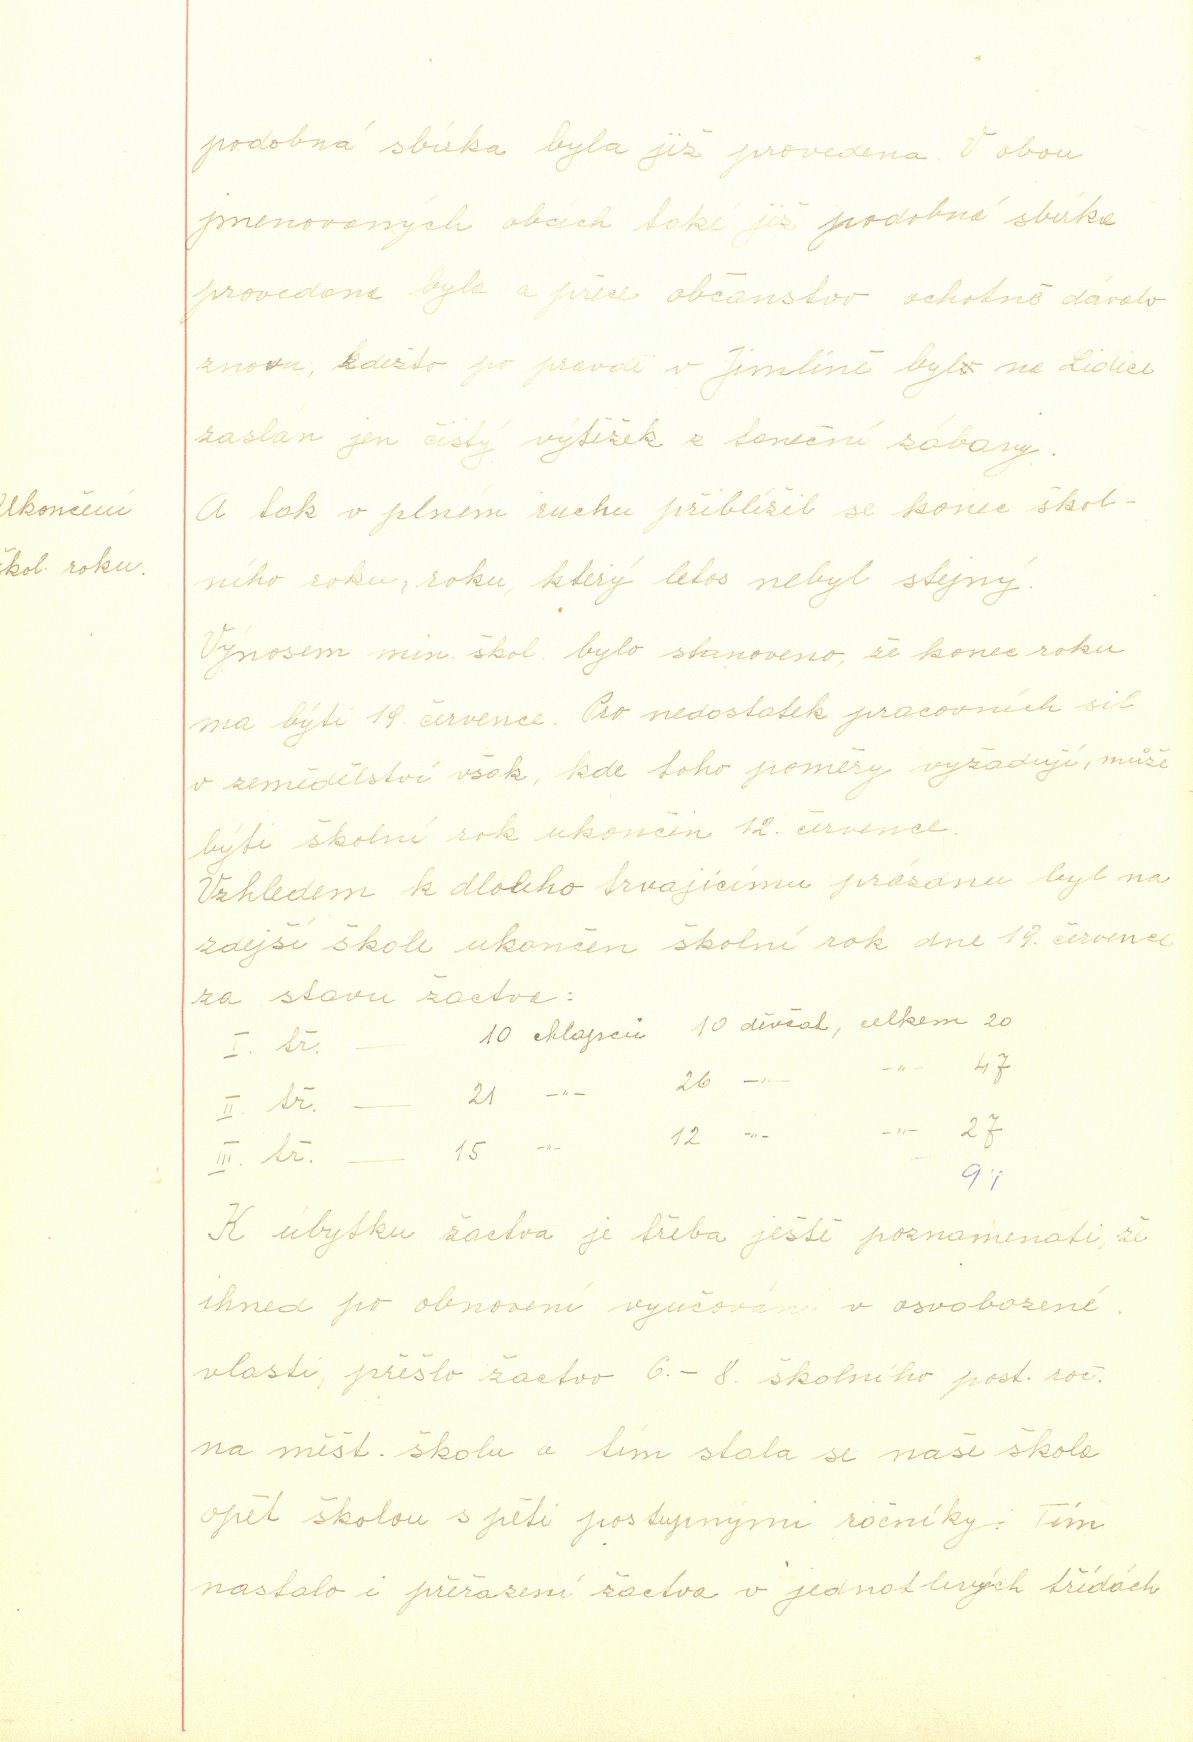 podobná sbírka byla již provedena. V obou
jmenovaných obcích také již podobná sbírka
provedena byla a přece občanstvo ochotně dávalo
znovu, kdežto po pravdě v Jimlíně bylo na Lidice
zaslán jen čistý výtěžek z taneční zábavy.
Ukončení
škol. roku.
A tak v plném ruchu přiblížil se konec škol-
ního roku, roku, který letos nebyl stejný.
Výnosem min. škol. bylo stanoveno, že konec roku
ma býti 19. července. Pro nedostatek pracovních sil
v zemědělství však, kde toho poměry vyžadují, může
býti školní rok ukončen 12. července.
Vzhledem k dlouho trvajícímu prázdnu byl na
zdejší škole ukončen školní rok dne 19. července
za stavu žactva:
I. tř. — 10 chlapců 10 děvčat, celkem 20
II. tř. — 21 -"- 26 -"- -"- 47
III. tř. — 15 -"- 12 -"- -"- 27
94
K úbytku žactva je třeba ještě poznamenati, že
ihned po obnovení vyučování v osvobozené
vlasti, přešlo žactvo 6.- 8. školního post. roč.
na měšt. školu a tím stala se naše škola
opět školou s pěti postupnými ročníky. Tím
nastalo i přeřazení žactva v jednotlivých třídách